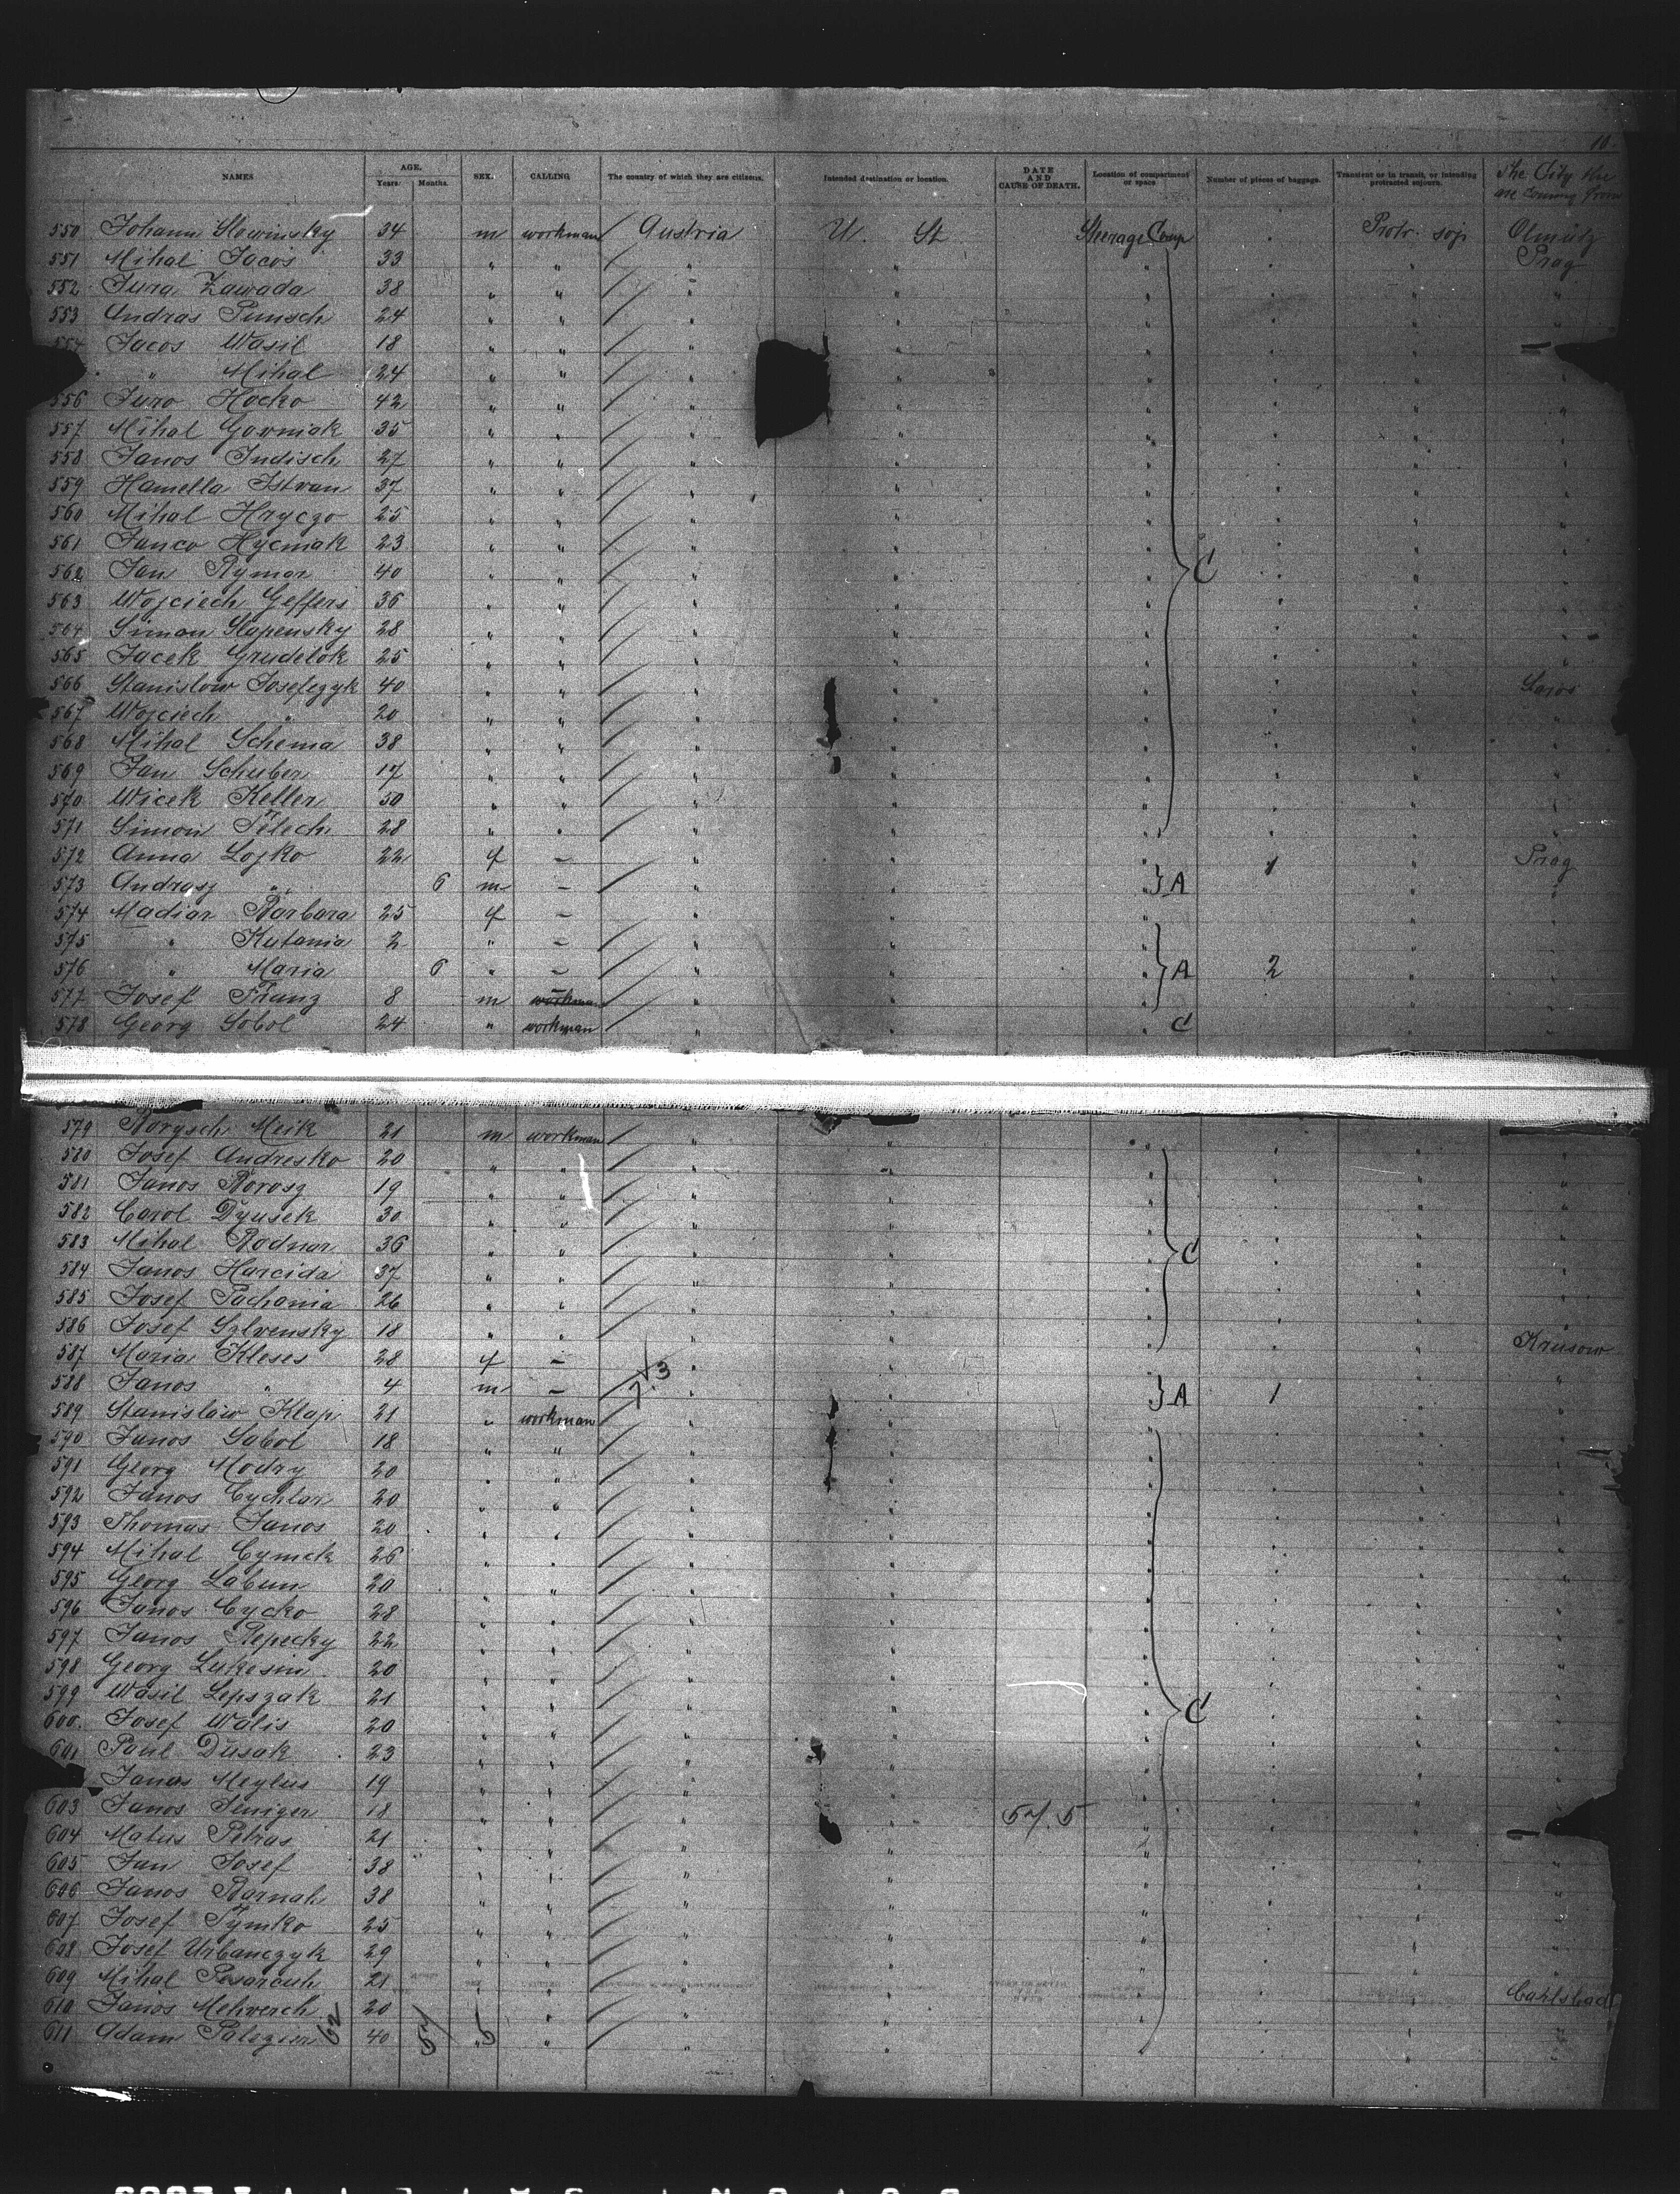 10.
NAMES AGE. Years. Months. SEX. CALLING The country of which they are citizens. Intended destination or location. DATE AND CAUSE OF DEATH. Location of compartment or space Number of pieces of baggage. Transient or in transit, or intending protracted sojourn. The City the are coming from
550 Johann Slowinsky 34 m workman Austria U. St Steerage Comp Protr. soj. Olmütz
551 Mihal Jacos 33 " " " " " " " Prag
552 Jura Zawada 38 " " " " " " " "
553 Andras Punsch 24 " " " " " " " "
554 Jacos Wasil 18 " " " " " " "
" Mihal 24 " " " " " " "
556 Juro Hocko 42 " " " " " " " "
557 Mihal Gorniak 35 " " " " " " "
558 Janos Indisch 27 " " " " " " " "
559 Hamella Istvan 37 " " " " " " " "
560 Mihal Hryczo 25 " " " " " " " "
561 Janco Hycniak 23 " " " " " " " "
562 Jan Rymar 40 " " " " " C " " "
563 Wojciech Geffers 36 " " " " " " " "
564 Simon Slapensky 28 " " " " " " " "
565 Jacek Grudelok 25 " " " " " " " "
566 Stanislow Josefczyk 40 " " " " " " " Saros
567 Wojciech " 20 " " " " " " " "
568 Mihal Schema 38 " " " " " " " "
569 Jan Schuber 17 " " " " " " " "
570 Wicek Keller 50 " " " " " " " "
571 Simon Pelech 28 " " " " " " " "
572 Anna Lojko 22 f – " " " 1 " Prag
573 Andrasz " 6 m – " " " A " "
574 Madiar Barbara 25 f – " " " " "
575 " Kutania 2 " – " " " " "
576 " Maria 6 " – " " " A 2 " "
577 Josef Franz 8 m workman " " " " "
578 Georg Sobol 24 " workman " " C " "
579 Borysch Meik 21 m workman " " " " " "
580 Josef Andresko 20 " " " " " " " "
581 Janos Borosz 19 " " " " " " " "
582 Carol Dyusek 30 " " " " " " " "
583 Mihal Bodnar 36 " " " " " C " " "
584 Janos Harcida 37 " " " " " " " "
585 Josef Pachania 26 " " " " " " " "
586 Josef Szlvensky 18 " " " " " " " "
587 Maria Kleses 28 f – " " " " " Krusow
588 Janos " 4 m – 7.13 " " " A 1 " "
589 Stanislaw Klap 21 " workman " " " " " "
590 Janos Sobol 18 " " " " " " " "
591 Georg Modry 20 " " " " " " " "
592 Janos Cychlar 20 " " " " " " " "
593 Thomas Janos 20 " " " " " " " "
594 Mihal Cymek 26 " " " " " " " "
595 Georg Labun 20 " " " " " " " "
596 Janos Cycko 28 " " " " " " " "
597 Janos Repecky 22 " " " " " " " "
598 Georg Lukesin 20 " " " " " " " "
599 Wasil Lepszak 21 " " " " " C " " "
600. Josef Walis 20 " " " " " " " "
601 Paul Dusak 23 " " " " " " " "
Janos Meylus 19 " " " " " " "
603 Janos Jeniger 18 " " " " 57.5 " " "
604 Matus Petras 21 " " " " " " "
605 Jan Josef 38 " " " " " " " "
606 Janos Barnah 38 " " " " " " " "
607 Josef Tymko 25 " " " " " " " "
608 Josef Urbanczyk 29 " " " " " " " "
609 Mihal Pesarcsh 21 " " " " " " "
610 Janos Mehverch 20 " " " " " " " Carlsbad
611 Adam Palezier 62 40 57 " 5 " " " " "